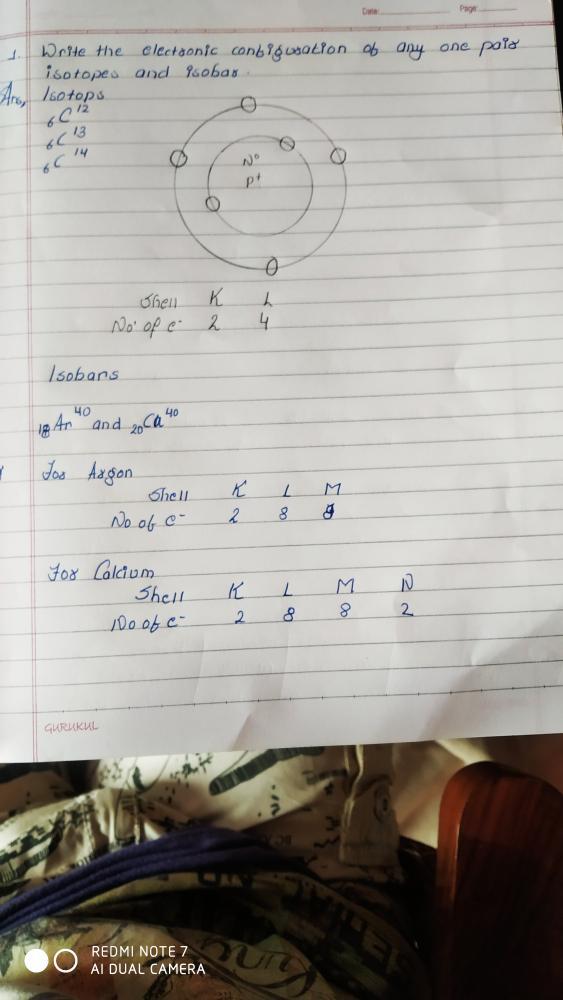 Date: Page:
1. Write the electronic configuration of any one pair
isotopes and isobar.
Ans, Isotops
6C12
6C13
6C14
N°
P+
Shell K L
No of e- 2 4
Isobars
18Ar40 and 20Ca40
For Argon
Shell K L M
No of e- 2 8 8
For Calcium
Shell K L M N
No of e- 2 8 8 2
GURUKUL
REDMI NOTE 7
AI DUAL CAMERA